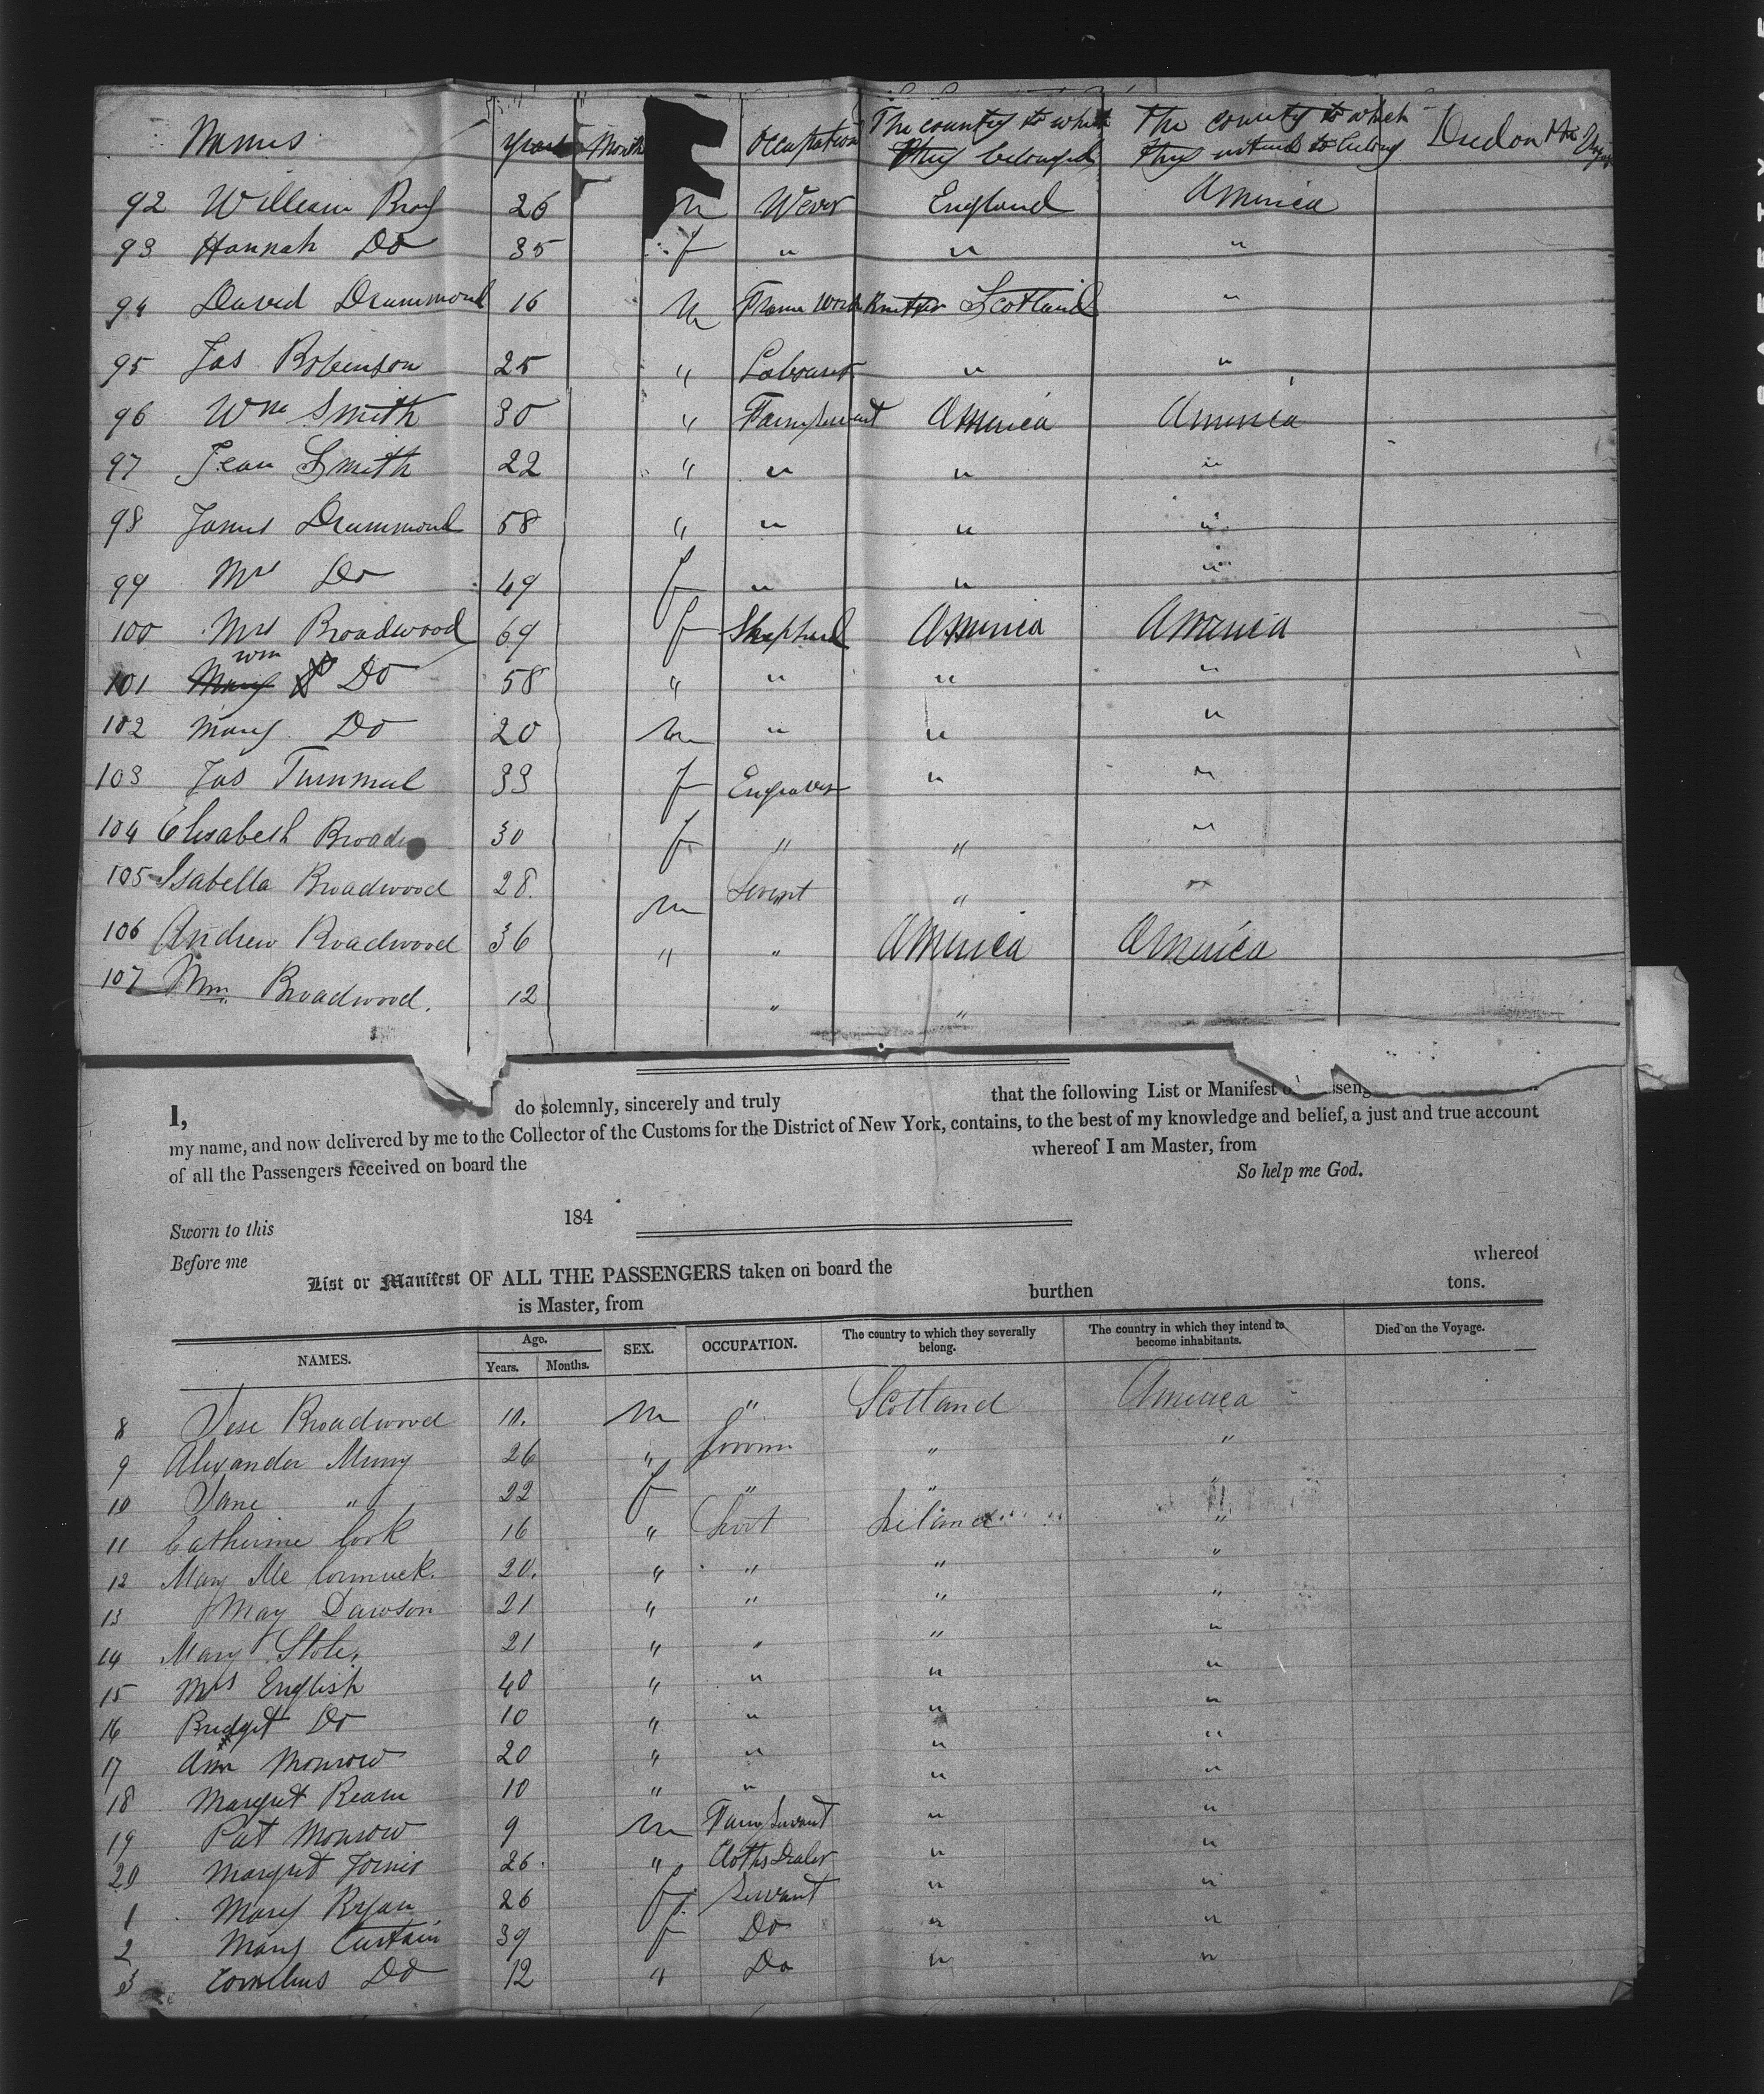 Names Years Months Occupation The country to which they belonged The country to which they intend to belong Died on the Voyage
92 William Bray 26 m Wever England America
93 Hannah Do 35 f " " "
94 David Drummond 16 m Frame Work Knitter Scotland "
95 Jas Robenson 25 " Labourer " "
96 Wm Smith 30 " Farm Servant America America
97 Jean Smith 22 " " " "
98 James Drummond 58 " " " "
99 Mrs Do 49 f " " "
100 Mrs Broadwood 69 f Shepherd America America
wm
101 Mary Do 58 " " " "
102 Mary Do 20 m " " "
103 Jas Turnmul 33 f Engraver " "
104 Elisabeth Broadw 30 f " " "
105 Isabella Broadwood 28. m Servnt " "
106 Andrew Broadwood 36 " " America America
107 Wm Broadwood. 12 " "
I, do solemnly, sincerely and truly that the following List or Manifest
my name, and now delivered by me to the Collector of the Customs for the District of New York, contains, to the best of my knowledge and belief, a just and true account
of all the Passengers received on board the whereof I am Master, from
So help me God.
Sworn to this 184
Before me
List or Manifest OF ALL THE PASSENGERS taken on board the whereof
is Master, from burthen tons.
NAMES. Age. Years. Months. SEX. OCCUPATION. The country to which they severally belong. The country in which they intend to become inhabitants. Died on the Voyage.
8 Jese Broadwood 10. m " Scotland America
9 Alexander Murry 26 " Groom " "
10 Jane " 22 f " " "
11 Catherine Cook 16 " Servt Ireland "
12 Mary Mc Cormuck. 20. " " " "
13 May Dawson 21 " " " "
14 Mary Stoler 21 " " " "
15 Mrs English 40 " " " "
16 Bridget Do 10 " " " "
17 Ann Monrow 20 " " " "
18 Margret Ream 10 " " " "
19 Pat Monrow 9 m Farm Servant " "
20 Margret 26. " Cloths Dealer " "
1 Mary Ryan 26 f Servant " "
2 Mary Curtain 39 f Do " "
3 Cornelius Do 12 " Do " "